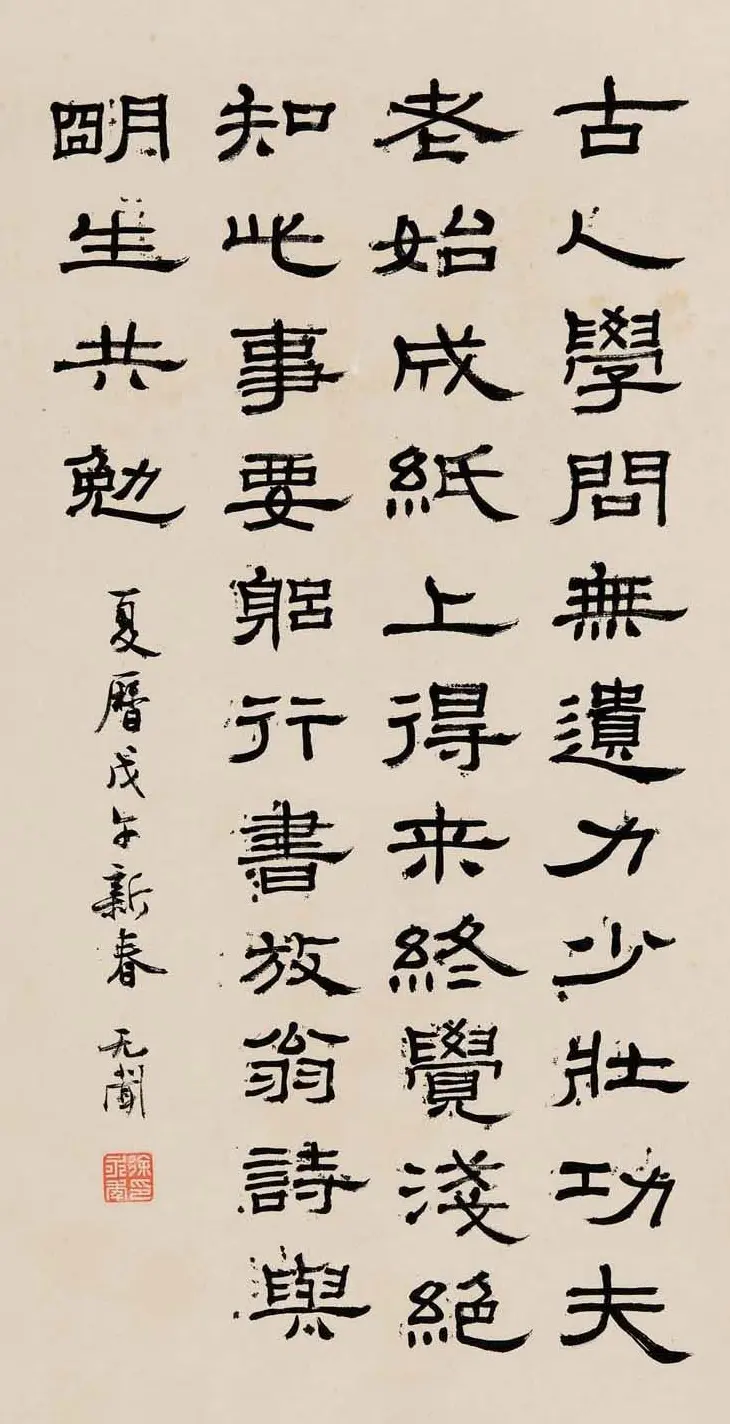 古人學問無遺力少壯功夫
老始成紙上得来終覺淺絕
知此事要躬行書放翁詩與
朙生共勉
夏曆戊午新春 无聞